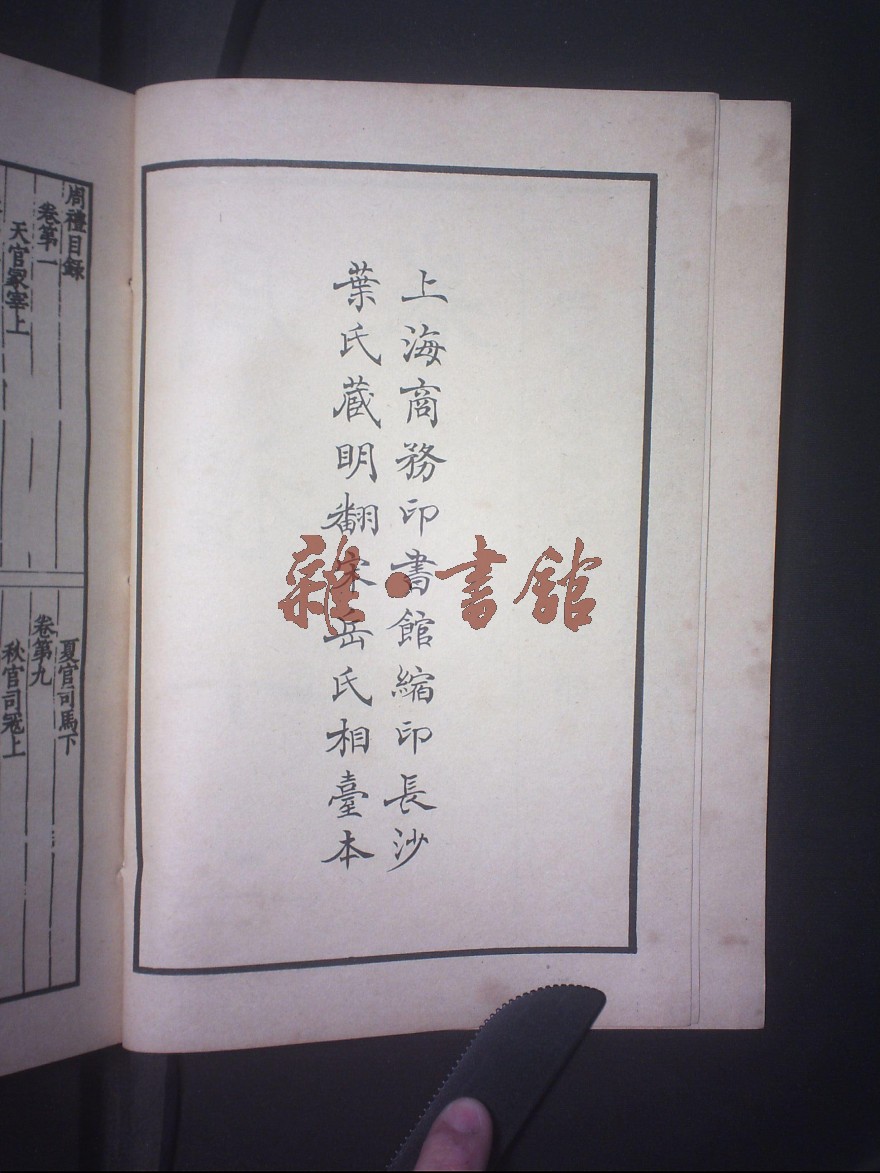 上海商務印書館縮印長沙
葉氏藏明翻宋岳氏相臺本
周禮目錄
卷第一
天官冢宰上
夏官司馬下
卷第九
秋官司寇上
雜·書館